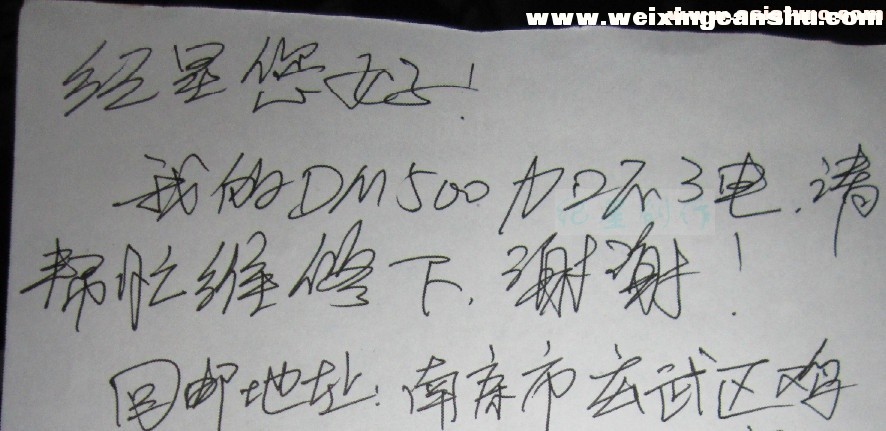 www.weixingcanshu.com
红星您好!
我的DM500加不了电,请
帮忙维修下,谢谢!
回邮地址:南京市玄武区鸡